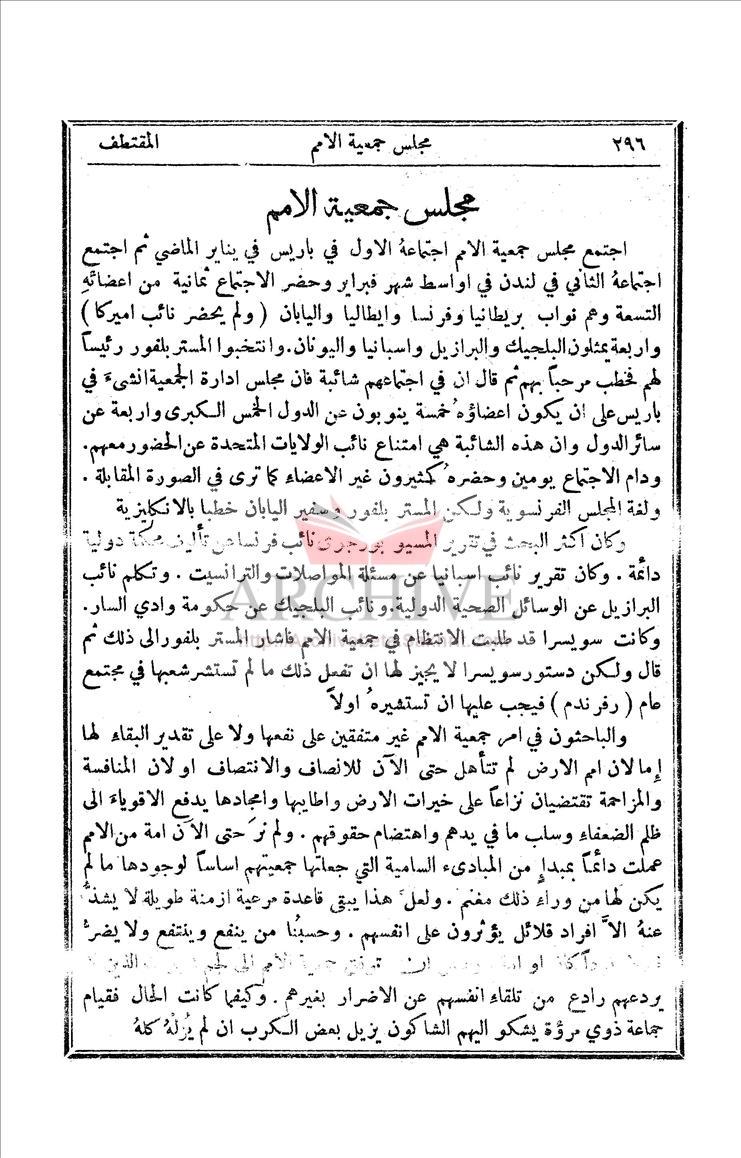 ٢٩٦ مجلس جمعية الامم المقتطف
مجلس جمعية الامم
اجتمع مجلس جمعية الامم اجتماعهُ الاول في باريس في يناير الماضي ثم اجتمع
اجتماعهُ الثاني في لندن في اواسط شهر فبراير وحضر الاجتماع ثمانية من اعضائهِ
التسعة وهم نواب بريطانيا وفرنسا وايطاليا واليابان (ولم يحضر نائب اميركا)
واربعة يمثلون البلجيك والبرازيل واسبانيا واليونان. وانتخبوا المستر بلفور رئيساً
لهم فخطب مرحباً بهم ثم قال ان في اجتماعهم شائبة فان مجلس ادارة الجمعية انشىءَ في
باريس على ان يكون اعضاؤهُ خمسة ينوبون عن الدول الخمس الكبرى واربعة عن
سائر الدول وان هذه الشائبة هي امتناع نائب الولايات المتحدة عن الحضور معهم.
ودام الاجتماع يومين وحضرهُ كثيرون غير الاعضاء كما ترى في الصورة المقابلة .
ولغة المجلس الفرنسوية ولكن المستر بلفور وسفير اليابان خطبا بالانكليزية
وكان اكثر البحث في تقرير المسيو بورجوى نائب فرنسا عن تأليف محكمة دولية
دائمة . وكان تقرير نائب اسبانيا عن مسئلة المواصلات والترانسيت . وتكلم نائب
البرازيل عن الوسائل الصحية الدولية. ونائب البلجيك عن حكومة وادي السار.
وكانت سويسرا قد طلبت الانتظام في جمعية الامم فاشار المستر بلفور الى ذلك ثم
قال ولكن دستور سويسرا لا يجيز لها ان تفعل ذلك ما لم تستشر شعبها في مجتمع
عام (رفرندم) فيجب عليها ان تستشيرهُ اولاً
والباحثون في امر جمعية الامم غير متفقين على نفعها ولا على تقدير البقاء لها
إما لان امم الارض لم تتأهل حتى الآن للانصاف والانتصاف او لان المنافسة
والمزاحمة تقتضيان نزاعاً على خيرات الارض واطايبها وامجادها يدفع الاقوياءَ الى
ظلم الضعفاء وسلب ما في يدهم واهتضام حقوقهم . ولم نرَ حتى الآن امة من الامم
عملت دائماً بمبدإ من المبادىء السامية التي جعلتها جمعيتهم اساساً لوجودها ما لم
يكن لها من وراء ذلك مغنم . ولعلَّ هذا يبقى قاعدة مرعية ازمنة طويلة لا يشذُّ
عنهُ الاَّ افراد قلائل يؤثرون على انفسهم . وحسبُنا من ينفع وينتفع ولا يضرُّ
او توفق جمعية الامم الى لجم الذين
يردعهم رادع من تلقاء انفسهم عن الاضرار بغيرهم . وكيفما كانت الحال فقيام
جماعة ذوي مروَّة يشكو اليهم الشاكون يزيل بعض الكرب ان لم يُزلْهُ كلهُ
ARCHIVE